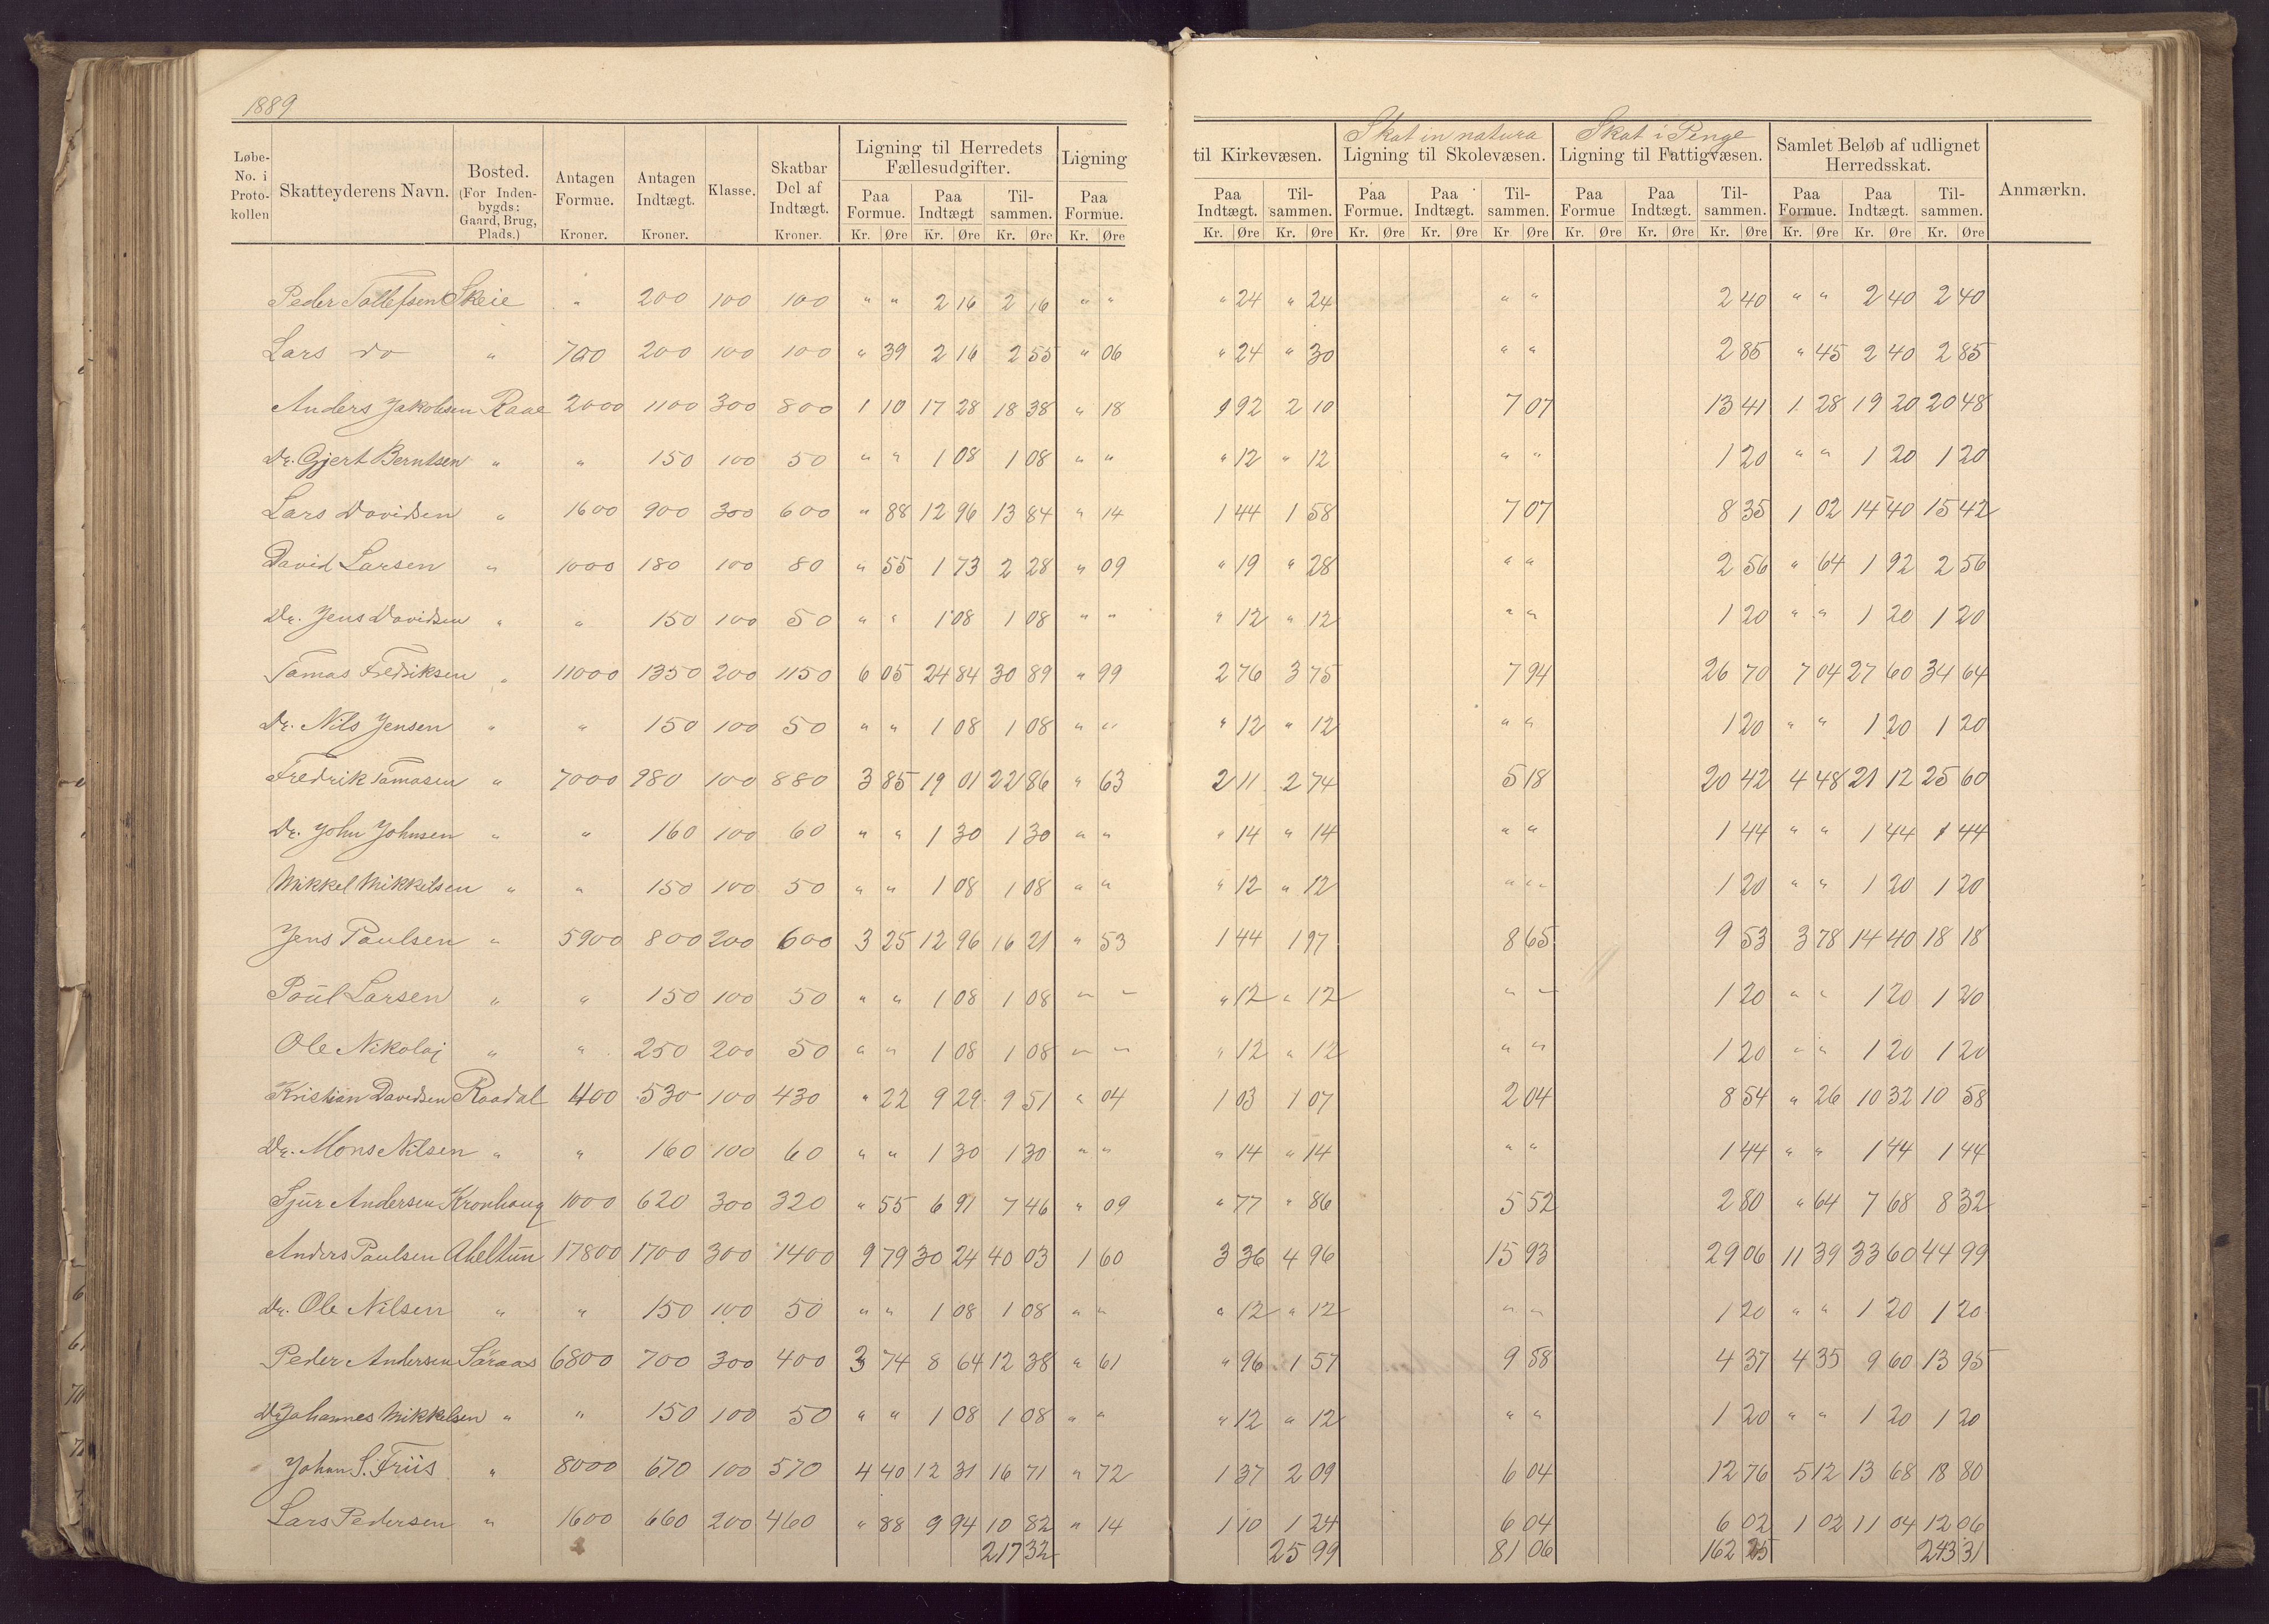 1889
Løbe-No. i Proto-kollen | Skatteyderens Navn. | Bosted. (For Inden-bygds: Gaard, Brug, Plads.) | Antagen Formue. Kroner. | Antagen Indtægt. Kroner. | Klasse. | Skatbar Del af Indtægt. Kroner. | Ligning til Herredets Fællesudgifter. Paa Formue. Kr. Øre | Paa Indtægt Kr. Øre | Til-sammen. Kr. Øre | Ligning Paa Formue. Kr. Øre | til Kirkevæsen. Paa Indtægt. Kr. Øre | Til-sammen. Kr. Øre | Skat in natura Ligning til Skolevæsen. Paa Formue. Kr. Øre | Paa Indtægt. Kr. Øre | Til-sammen. Kr. Øre | Skat i Penge Ligning til Fattigvæsen. Paa Formue Kr. Øre | Paa Indtægt. Kr. Øre | Til-sammen. Kr. Øre | Samlet Beløb af udlignet Herredsskat. Paa Formue. Kr. Øre | Paa Indtægt. Kr. Øre | Til-sammen. Kr. Øre | Anmærkn.
Peder Tollefsen Skeie " 200 100 100 " " 2 16 2 16 " " " 24 " 24 " " 2 40 " " 2 40 2 40
Lars do " 700 200 100 100 " 39 2 16 2 55 " 06 " 24 " 30 " " 2 85 " 45 2 40 2 85
Anders Jakobsen Raae 2000 1100 300 800 1 10 17 28 18 38 " 18 1 92 2 10 7 07 13 41 1 28 19 20 20 48
Dr. Gjert Berntsen " " 150 100 50 " " 1 08 1 08 " " " 12 " 12 " " 1 20 " " 1 20 1 20
Lars Davidsen " 1600 900 300 600 " 88 12 96 13 84 " 14 1 44 1 58 7 07 8 35 1 02 14 40 15 42
David Larsen " 1000 180 100 80 " 55 1 73 2 28 " 09 " 19 " 28 " " 2 56 " 64 1 92 2 56
Dr. Jens Davidsen " " 150 100 50 " " 1 08 1 08 " " " 12 " 12 " " 1 20 " " 1 20 1 20
Tamas Fredriksen " 11000 1350 200 1150 6 05 24 84 30 89 " 99 2 76 3 75 7 94 26 70 7 04 27 60 34 64
Dr. Nils Jensen " " 150 100 50 " " 1 08 1 08 " " " 12 " 12 " " 1 20 " " 1 20 1 20
Fredrik Tamasen " 7000 980 100 880 3 85 19 01 22 86 " 63 2 11 2 74 5 18 20 42 4 48 21 12 25 60
Dr. John Johnsen " " 160 100 60 " " 1 30 1 30 " " " 14 " 14 " " 1 44 " " 1 44 1 44
Mikkel Mikkelsen " " 150 100 50 " " 1 08 1 08 " " " 12 " 12 " " 1 20 " " 1 20 1 20
Jens Paulsen " 5900 800 200 600 3 25 12 96 16 21 " 53 1 44 1 97 8 65 9 53 3 78 14 40 18 18
Poul Larsen " " 150 100 50 " " 1 08 1 08 " " " 12 " 12 " " 1 20 " " 1 20 1 20
Ole Nikolaj " " 250 200 50 " " 1 08 1 08 " " " 12 " 12 " " 1 20 " " 1 20 1 20
Kristian Davidsen Raadal 400 530 100 430 " 22 9 29 9 51 " 04 1 03 1 07 2 04 8 54 " 26 10 32 10 58
Dr. Mons Nilsen " " 160 100 60 " " 1 30 1 30 " " " 14 " 14 " " 1 44 " " 1 44 1 44
Sjur Andersen Kronhoug 1000 620 300 320 " 55 6 91 7 46 " 09 " 77 " 86 5 52 2 80 " 64 7 68 8 32
Anders Paulsen Aheltun 17800 1700 300 1400 9 79 30 24 40 03 1 60 3 36 4 96 15 93 29 06 11 39 33 60 44 99
Dr. Ole Nilsen " " 150 100 50 " " 1 08 1 08 " " " 12 " 12 " " 1 20 " " 1 20 1 20
Peder Andersen Säraas 6800 700 300 400 3 74 8 64 12 38 " 61 " 96 1 57 9 58 4 37 4 35 9 60 13 95
Dr Johannes Mikkelsen " " 150 100 50 " " 1 08 1 08 " " " 12 " 12 " " 1 20 " " 1 20 1 20
Johan S. Friis " 8000 670 100 570 4 40 12 31 16 71 " 72 1 37 2 09 6 04 12 76 5 12 13 68 18 80
Lars Pedersen " 1600 660 200 460 " 88 9 94 10 82 " 14 1 10 1 24 6 04 6 02 1 02 11 04 12 06
217 32 25 99 81 06 162 25 243 31